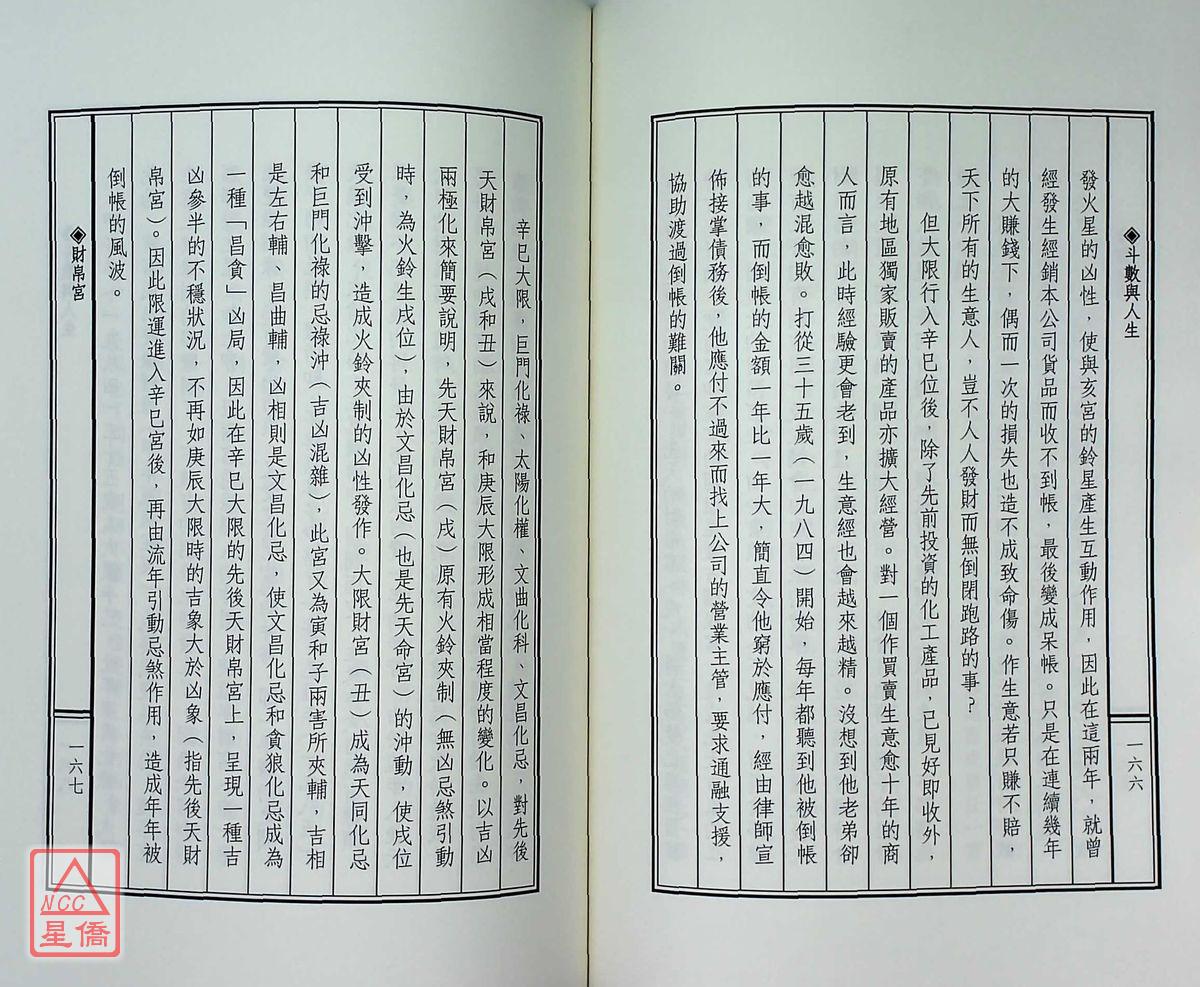 ◈斗數與人生
一六六
發火星的凶性，使與亥宮的鈴星產生互動作用，因此在這兩年，就曾
經發生經銷本公司貨品而收不到帳，最後變成呆帳。只是在連續幾年
的大賺錢下，偶而一次的損失也造不成致命傷。作生意若只賺不賠，
天下所有的生意人，豈不人人發財而無倒閉跑路的事？
但大限行入辛巳位後，除了先前投資的化工產品，已見好即收外，
原有地區獨家販賣的產品亦擴大經營。對一個作買賣生意愈十年的商
人而言，此時經驗更會老到，生意經也會越來越精。沒想到他老弟卻
愈越混愈敗。打從三十五歲（一九八四）開始，每年都聽到他被倒帳
的事，而倒帳的金額一年比一年大，簡直令他窮於應付，經由律師宣
佈接掌債務後，他應付不過來而找上公司的營業主管，要求通融支援，
協助渡過倒帳的難關。
辛巳大限，巨門化祿、太陽化權、文曲化科、文昌化忌，對先後
天財帛宮（戌和丑）來說，和庚辰大限形成相當程度的變化。以吉凶
兩極化來簡要說明，先天財帛宮（戌）原有火鈴夾制（無凶忌煞引動
時，為火鈴生戌位），由於文昌化忌（也是先天命宮）的沖動，使戌位
受到沖擊，造成火鈴夾制的凶性發作。大限財宮（丑）成為天同化忌
和巨門化祿的忌祿沖（吉凶混雜），此宮又為寅和子兩害所夾輔，吉相
是左右輔、昌曲輔，凶相則是文昌化忌，使文昌化忌和貪狼化忌成為
一種「昌貪」凶局，因此在辛巳大限的先後天財帛宮上，呈現一種吉
凶參半的不穩狀況，不再如庚辰大限時的吉象大於凶象（指先後天財
帛宮）。因此限運進入辛巳宮後，再由流年引動忌煞作用，造成年年被
倒帳的風波。
◈財帛宮
一六七
NCC
星僑